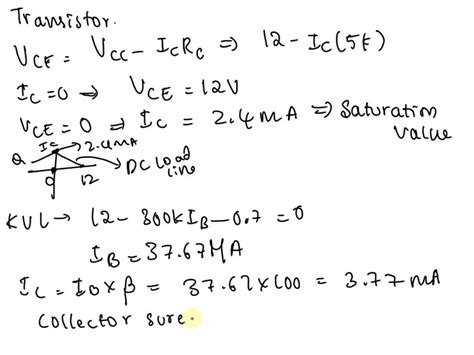 Transistor.
VCE = VCC - ICRC ⇒ 12 - IC(5k)
IC=0 → VCE = 12V
VCE = 0 ⇒ IC = 2.4mA ⇒ Saturation value
IC
2.4mA
Q
0
12
DC Load line
KVL → 12 - 300kIB - 0.7 = 0
IB = 37.67MA
IC = IB x β = 37.67x100 = 3.77 mA
Collector sure.